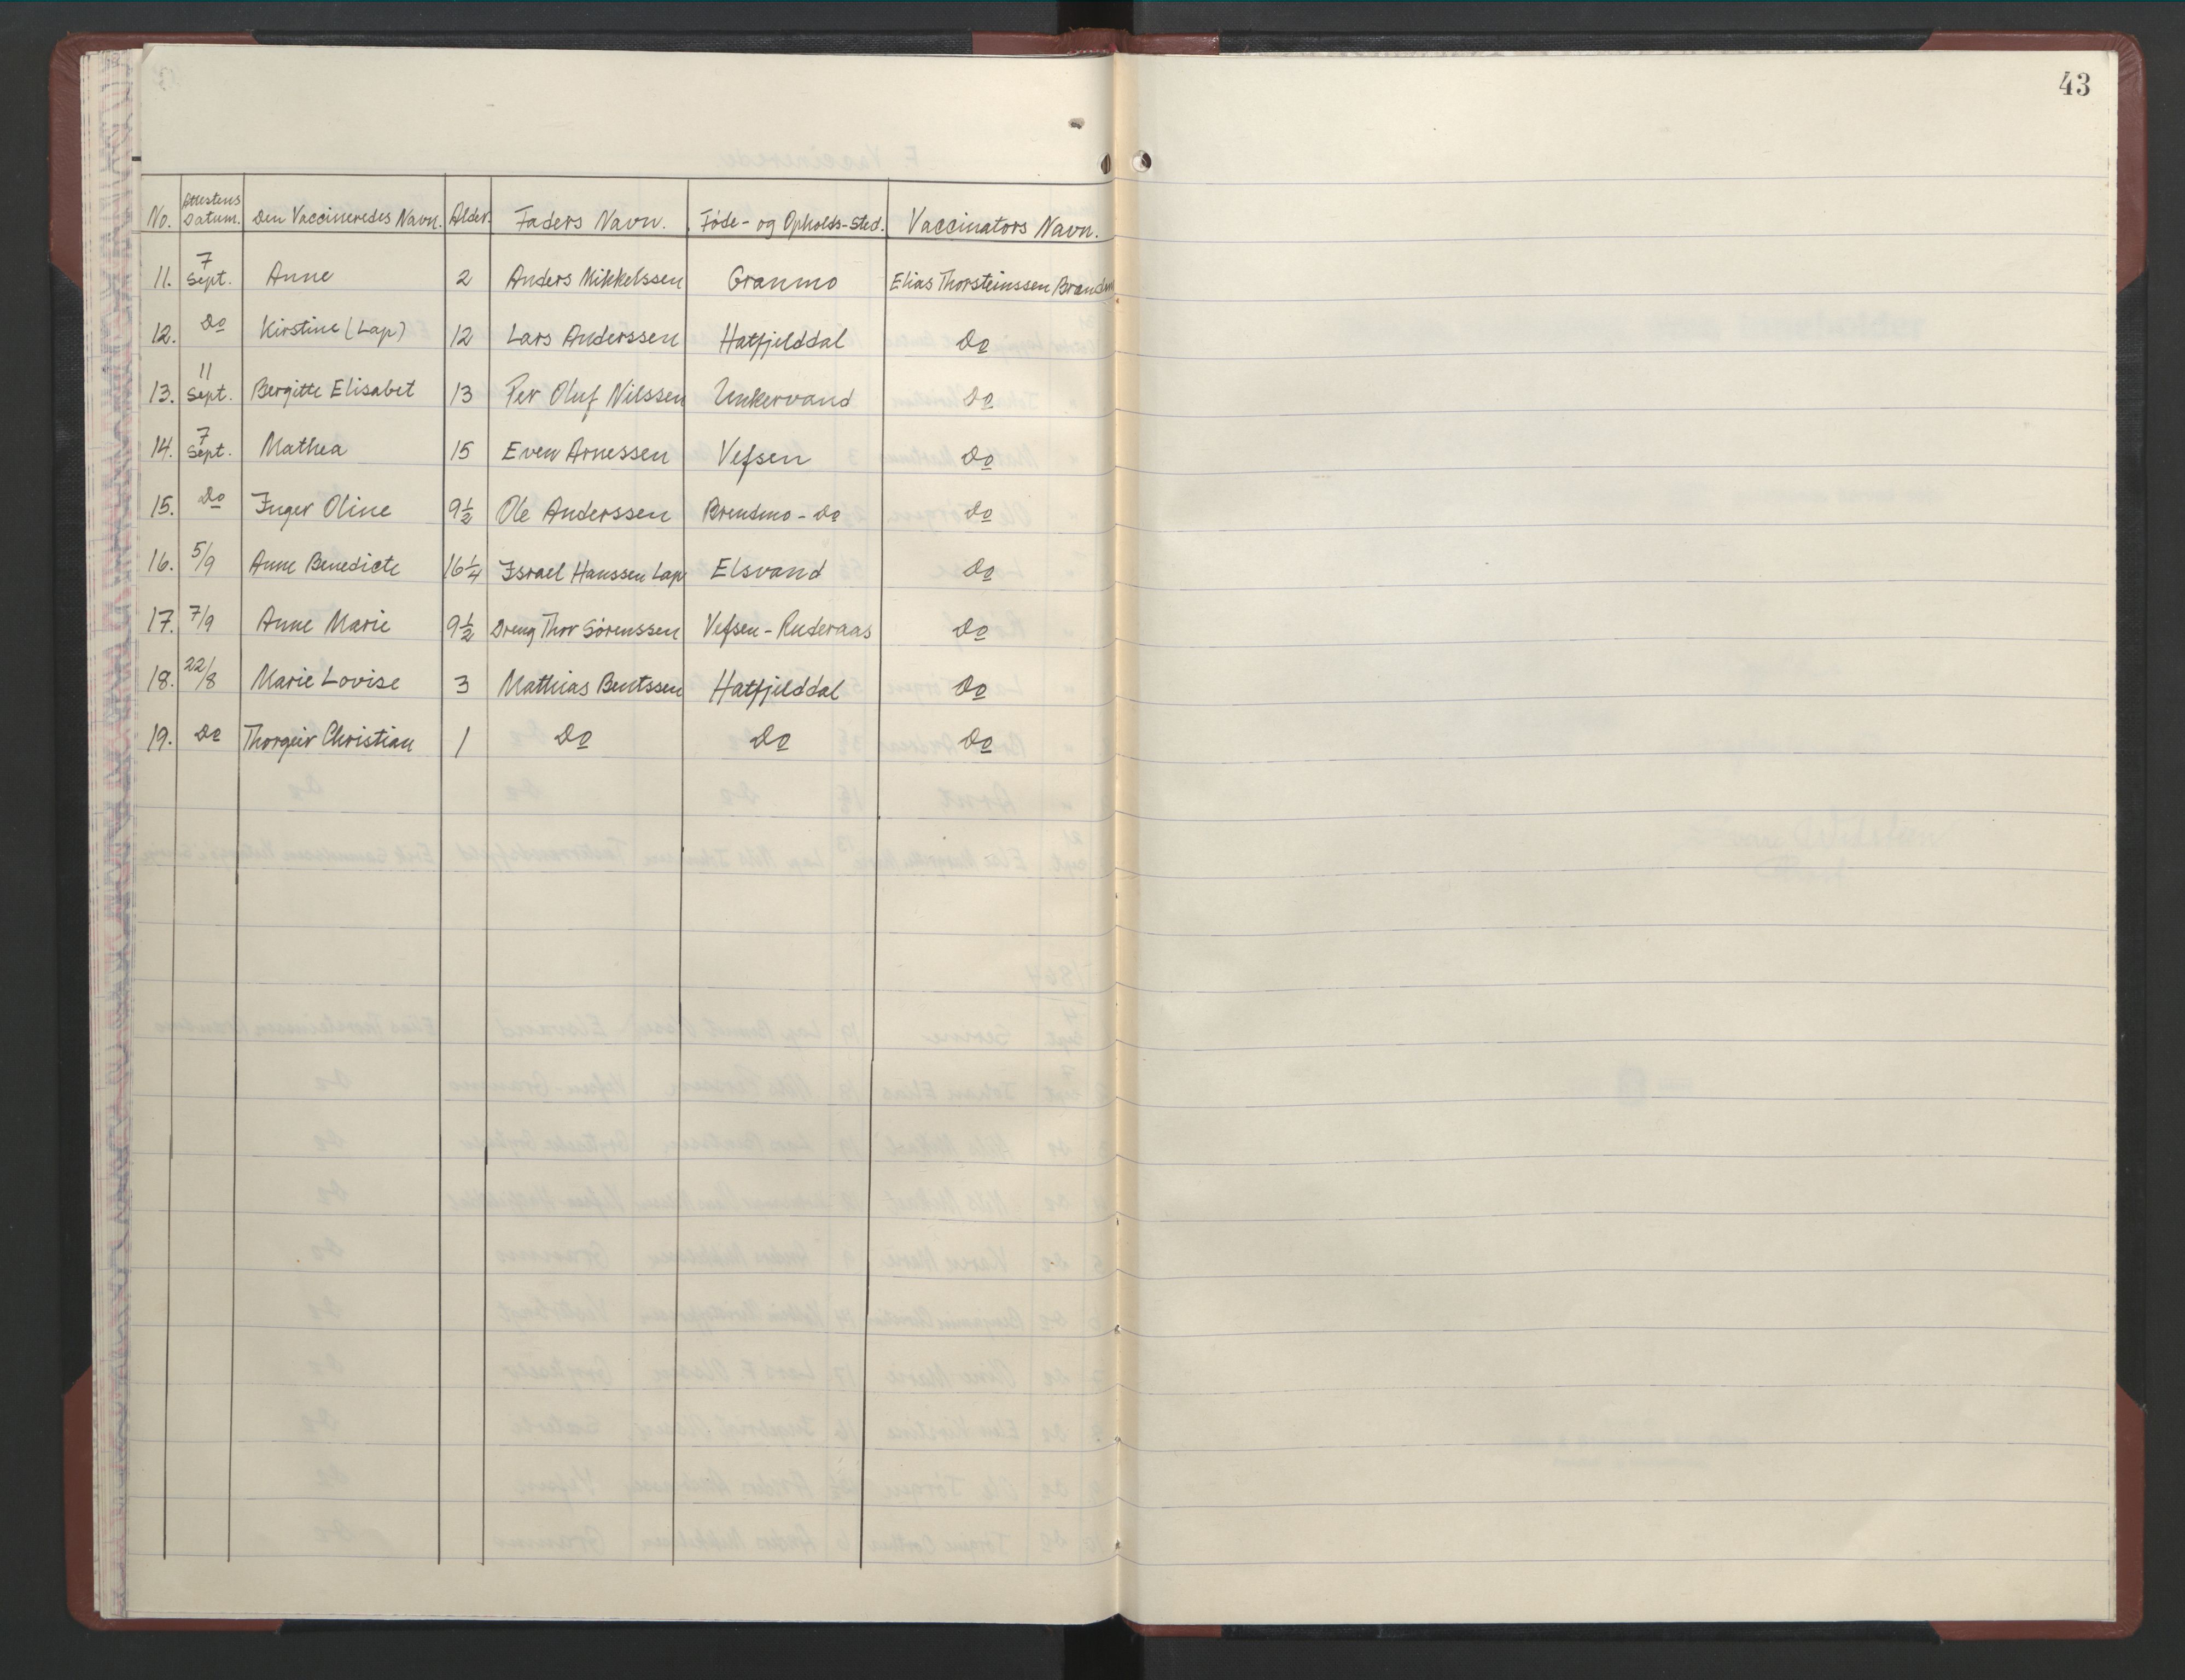 43
No. Attestens Datum. Den Vaccineredes Navn. Alder. Faders Navn. Føde- og Opholds-Sted. Vaccinators Navn.
11. 7 Sept. Anne 2 Anders Mikkelssen Granmo Elias Thorsteinssen
12. Do Kirstine (Lap) 12 Lars Anderssen Hatfjelddal Do
13. 11 Sept. Bergitte Elisabet 13 Per Oluf Nilssen Unkervand Do
14. 7 Sept. Mathea 15 Even Arnessen Vefsen Do
15. Do Inger Oline 9½ Ole Anderssen Brendmo - Do Do
16. 5/9 Anne Benedicte 16¼ Israel Hanssen Lap Elsvand Do
17. 7/9 Anne Marie 9½ Dreng Thor Sørenssen Vefsen - Ruderaas Do
18. 22/8 Marie Lovise 3 Mathias Bentssen Hatfjelddal Do
19. Do Thorgeir Christian 1 Do Do Do